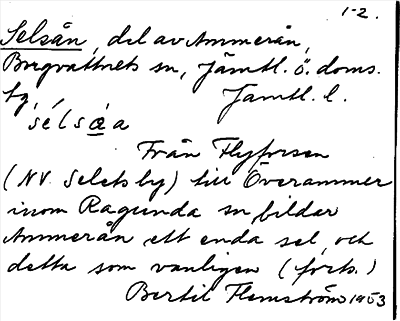 1-2.
Selsån, del av Ammerån,
Borgvattnets sn, Jämtl. ö. doms.
tg, Jämtl. l.
´sélsa̲a
Från Flyforsen
(NV. Selets by) till Överammer
inom Ragunda sn, bildar
Ammerån ett enda sel, och
detta som vanligen (forts.)
Bertil Flemström 1953